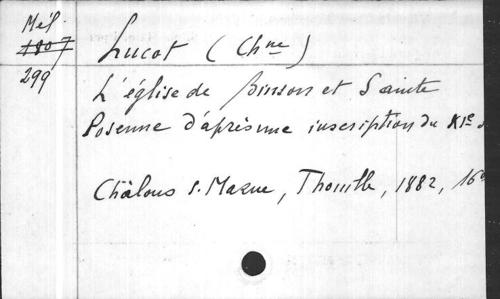 Mél.
1807
299
Lucot (Chne)
L'église de Binson et Sainte
Posenne d'après une inscription du XIe s
Châlons s. Marne, Thouille, 1882, 16°